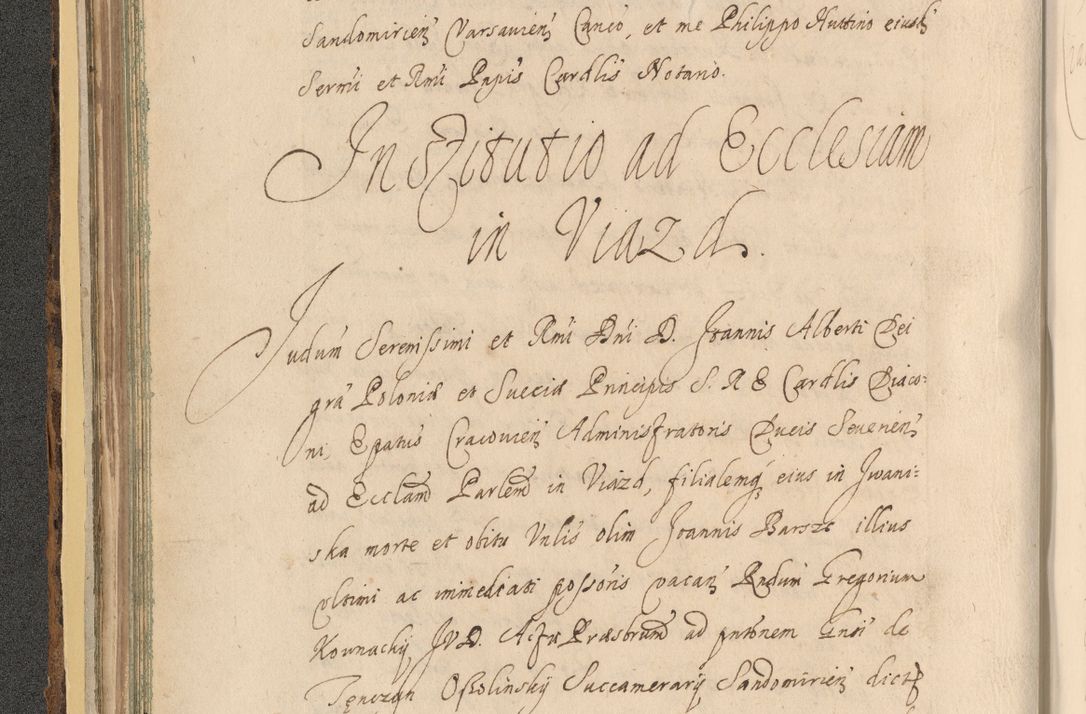 Sandomirień Varsavień Canco, et me Philippo Huttino eiusd
Sermi et Rmi Pnpis Cardlis Notario.
Institutio ad Ecclesiam
in Viazd.
Judum Serenissimi et Rmi Dni D. Joannis Alberti Dei
grã Poloniæ et Sueciæ Principis S. R E Cardlis Diaco-
ni, Epatus Cracovień Administratoris Ducis Severień
ad Ecclam Parlem in Viazd, filialemq eius in Iwani-
ska morte et obitu Vnlis olim Joannis Barszc illius
vltimi ac immediati possoris vacań Rndum Gregorium
Kownacky JVD. Præsbrum ad pntonem Gnsi de
Tęnczyn Ossolinsky Succamerary Sandomirień dict